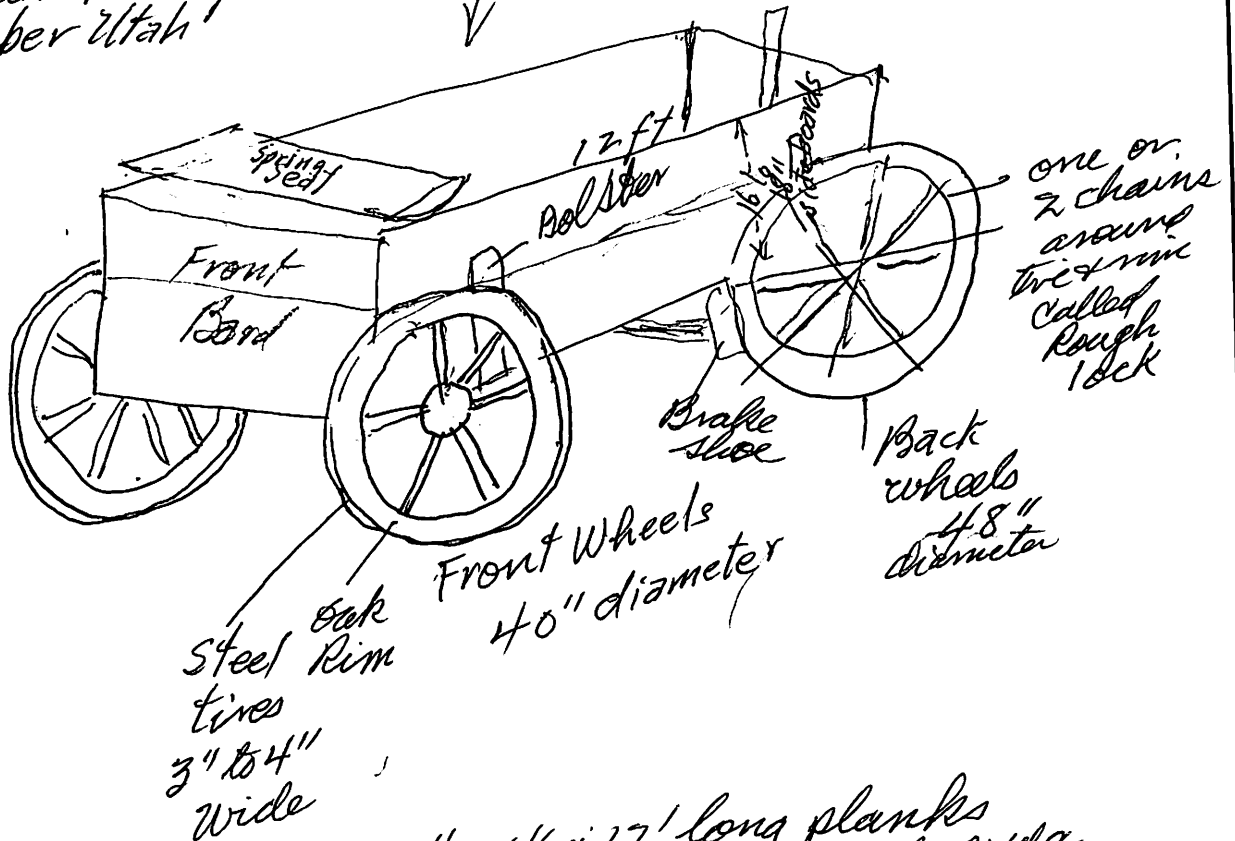 ber Utah"
12 ft
Spring
Seat
Bolster
16"
18"
side Boards
one or
2 chains
around
tire & rim
Called
Rough
lock
Front
Bord
Brake
shoe
Back
wheels
48"
diameter
Front Wheels
40" diameter
oak
Rim
Steel
tires
3" to 4"
wide
long planks